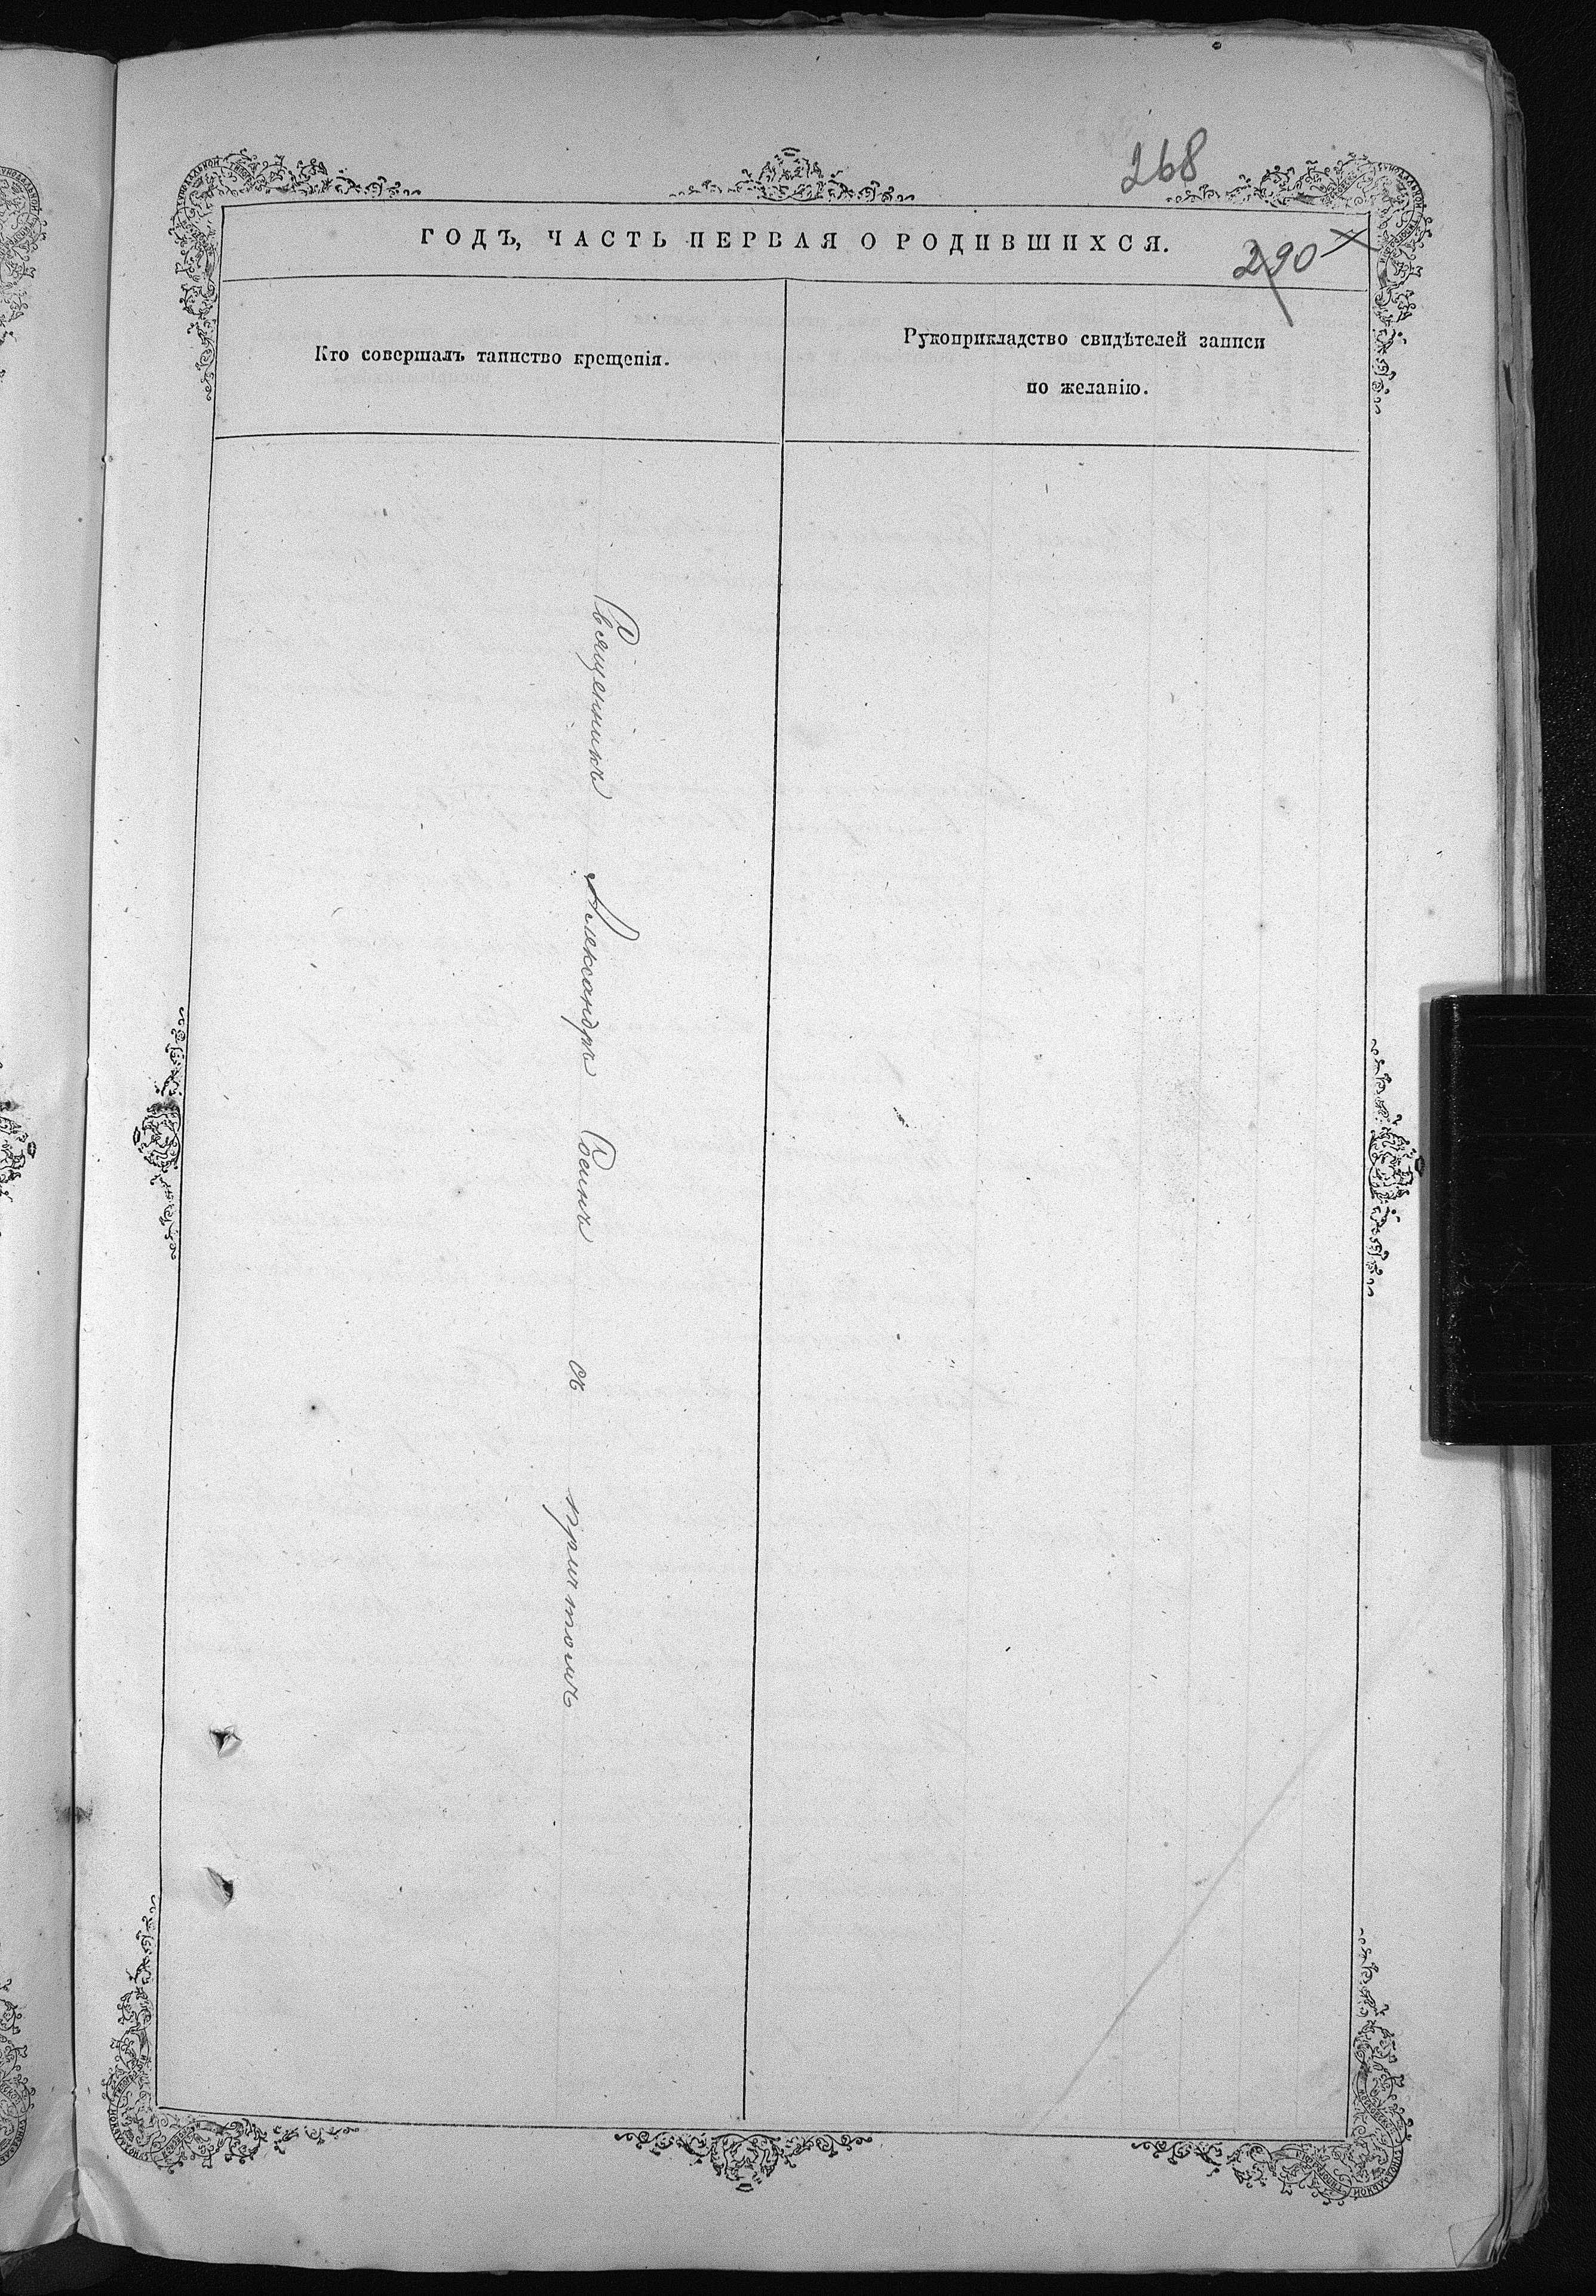 268
ГОДЪ, ЧАСТЬ ПЕРВАЯ О РОДИВШИХСЯ.
290
Кто совершалъ таинство крещенія.
Рукоприкладство свидѣтелей записи
по желанію.
Священникъ Александръ Сеинъ съ причтомъ